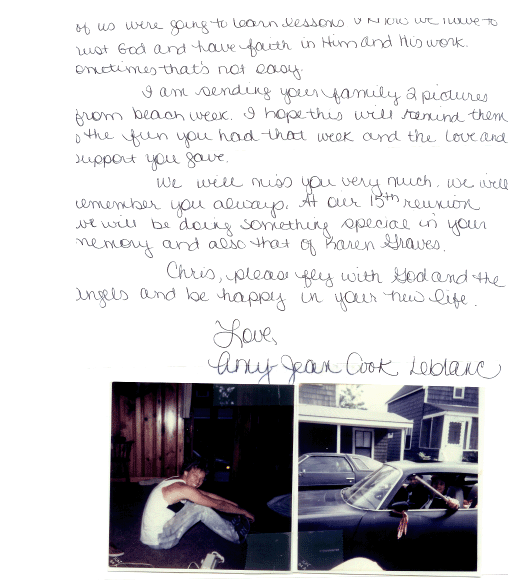 of us were going to learn lessons & know we have to
rust God and have faith in Him and His work.
ometimes that's not easy.
I am sending your family 2 pictures
from beach week. I hope this will remind them
the fun you had that week and the love and
support you gave.
We will miss you very much. We will
emember you always. At our 15th reunion
we will be doing something special in your
memory and also that of Karen Graves.
Chris, please fly with God and the
angels and be happy in your new life.
Love,
Amy Jean Cook Leblanc